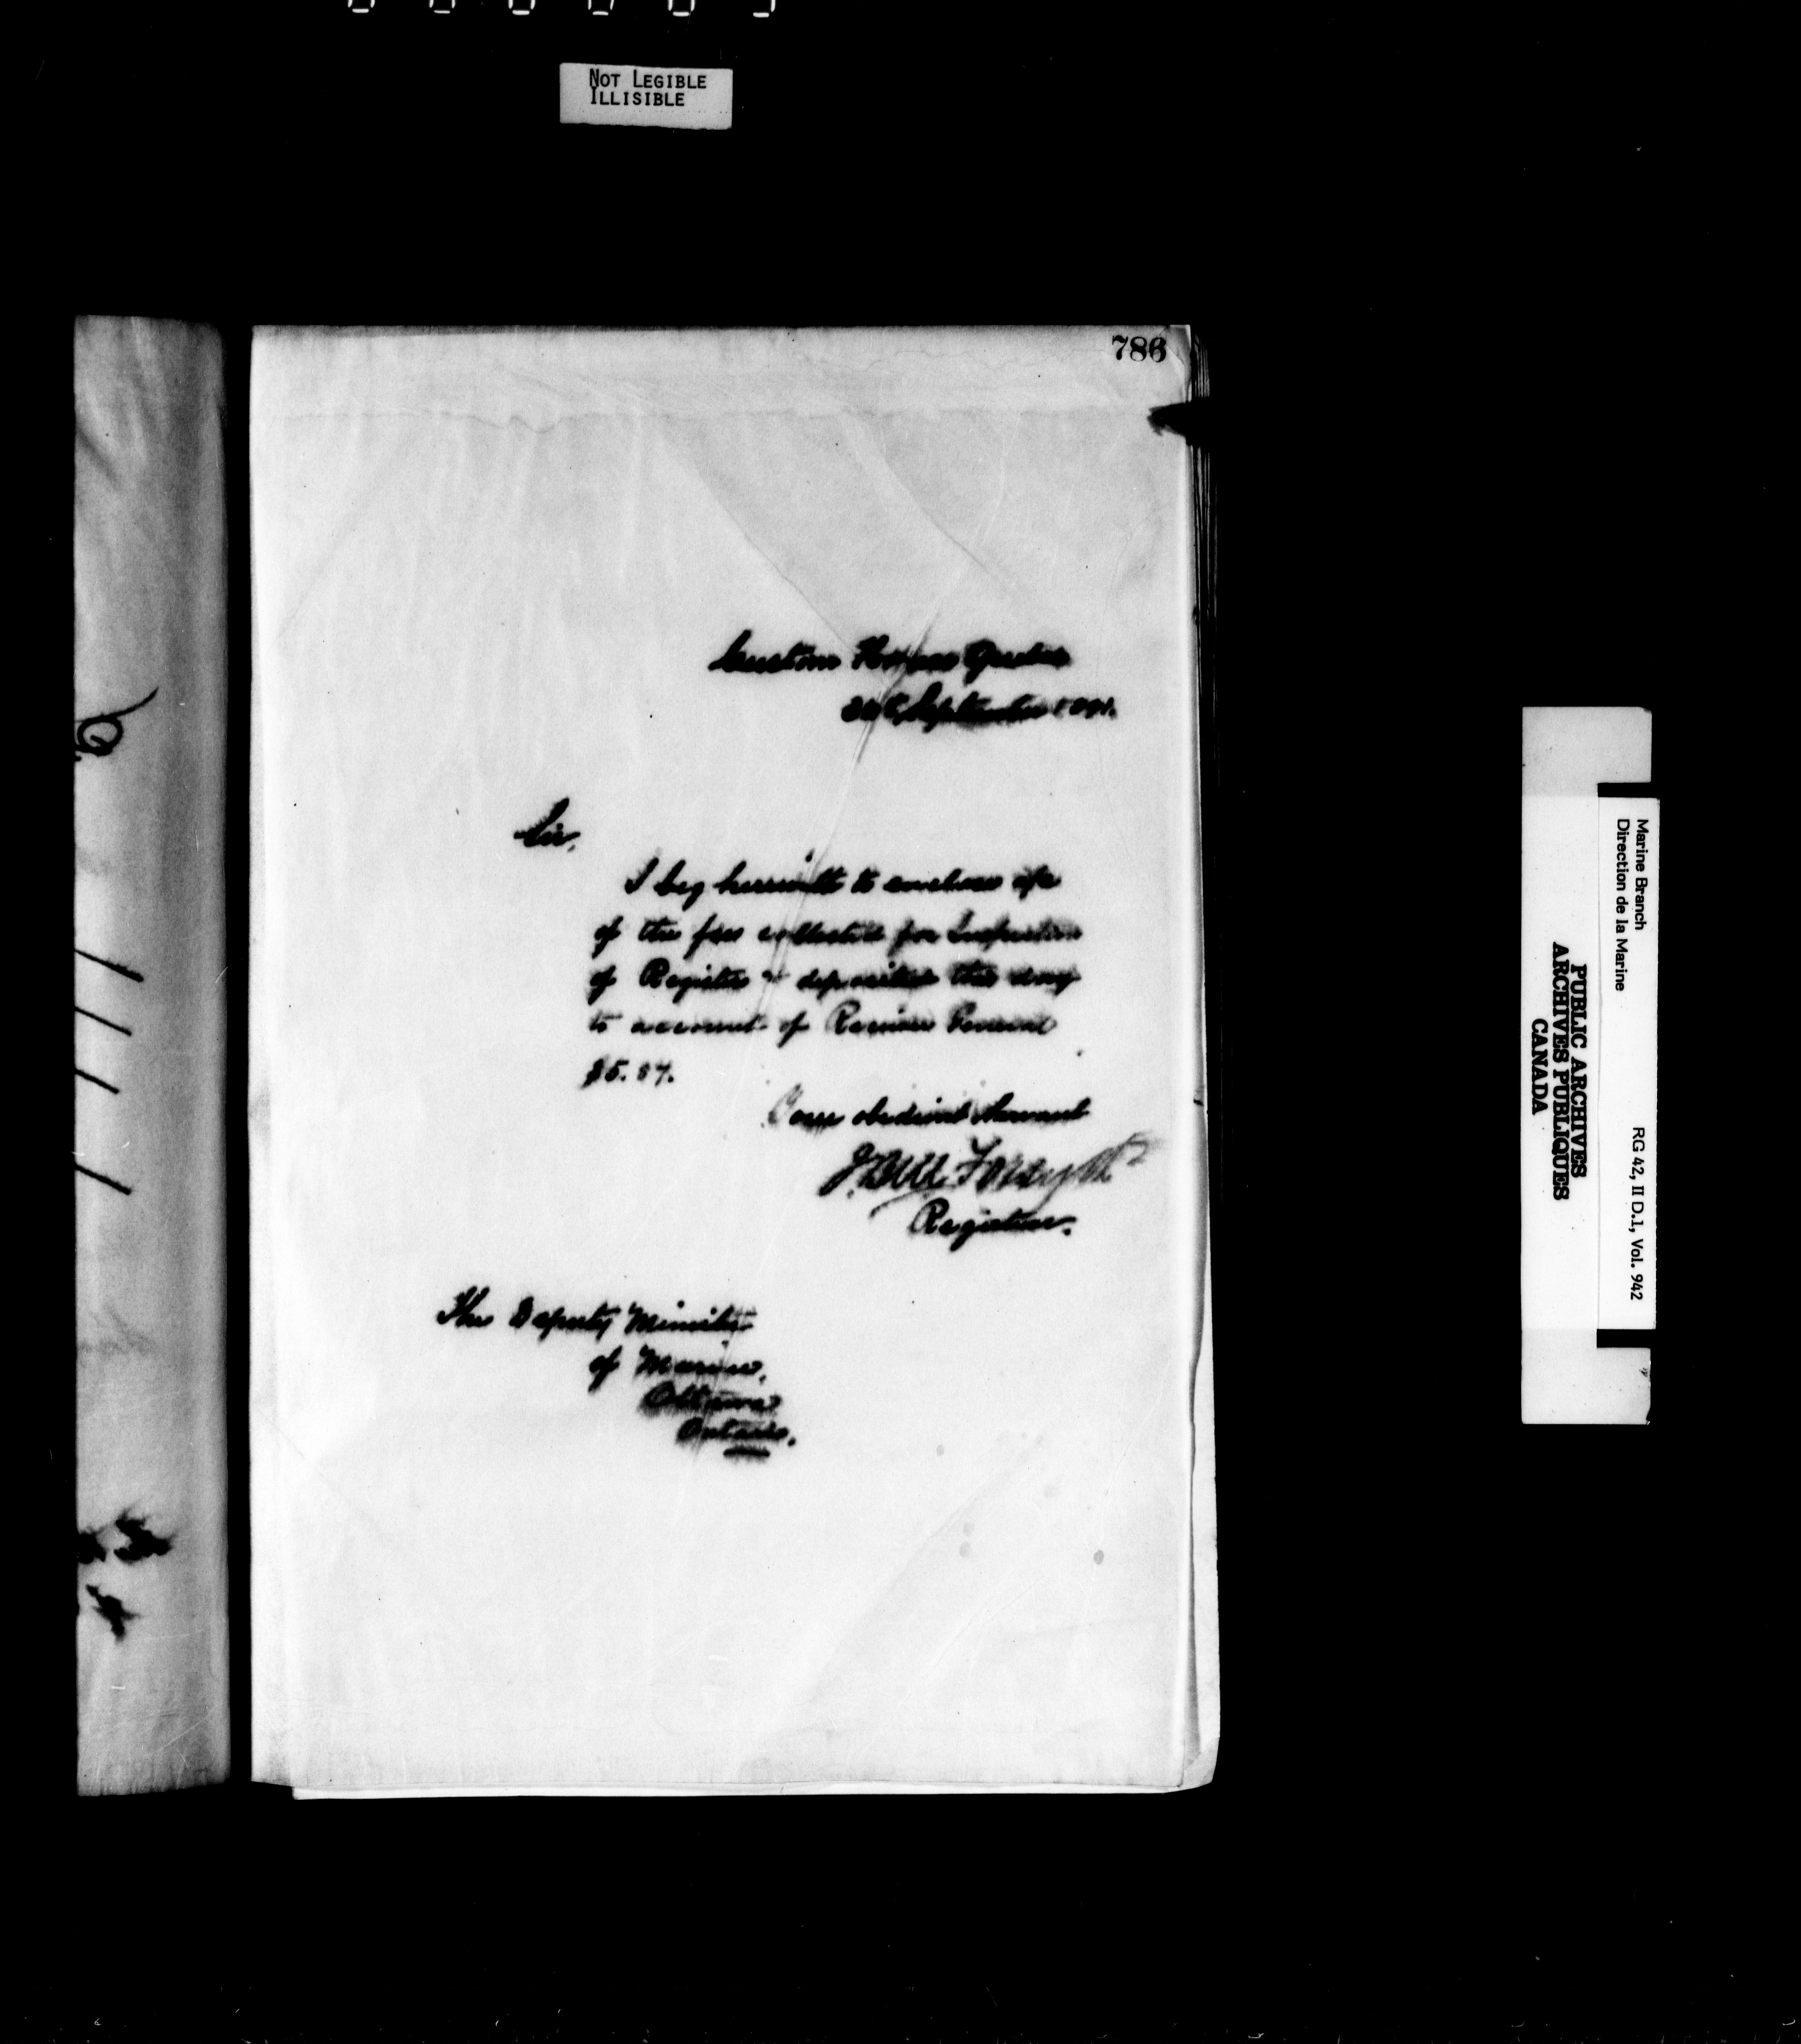 NOT LEGIBLE
ILLISIBLE
786
Custom House Quebec
September 1891.
Sir,
I beg herewith to enclose a/c
of the fees collected for Inspection
of Register & deposited this day
to account of Receiver General
$5.57.
Your obedient Servant
J. Bell Forsyth
Registrar.
The Deputy Minister
of Marine,
Ottawa
Ontario.
Marine Branch
Direction de la Marine
RG 42, II D.1, Vol. 942
PUBLIC ARCHIVES
ARCHIVES PUBLIQUES
CANADA